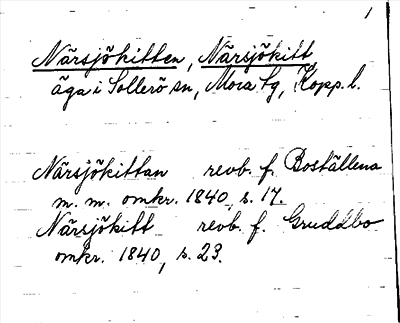 1
Närsjökitten, Närsjökitt,
äga i Sollerö sn, Mora tg, Kopp. l.
Närsjökittan revb. f. Boställena
m. m. omkr. 1840, s. 17.
Närsjökitt revb. f. Gruddbo
omkr. 1840, s. 23.